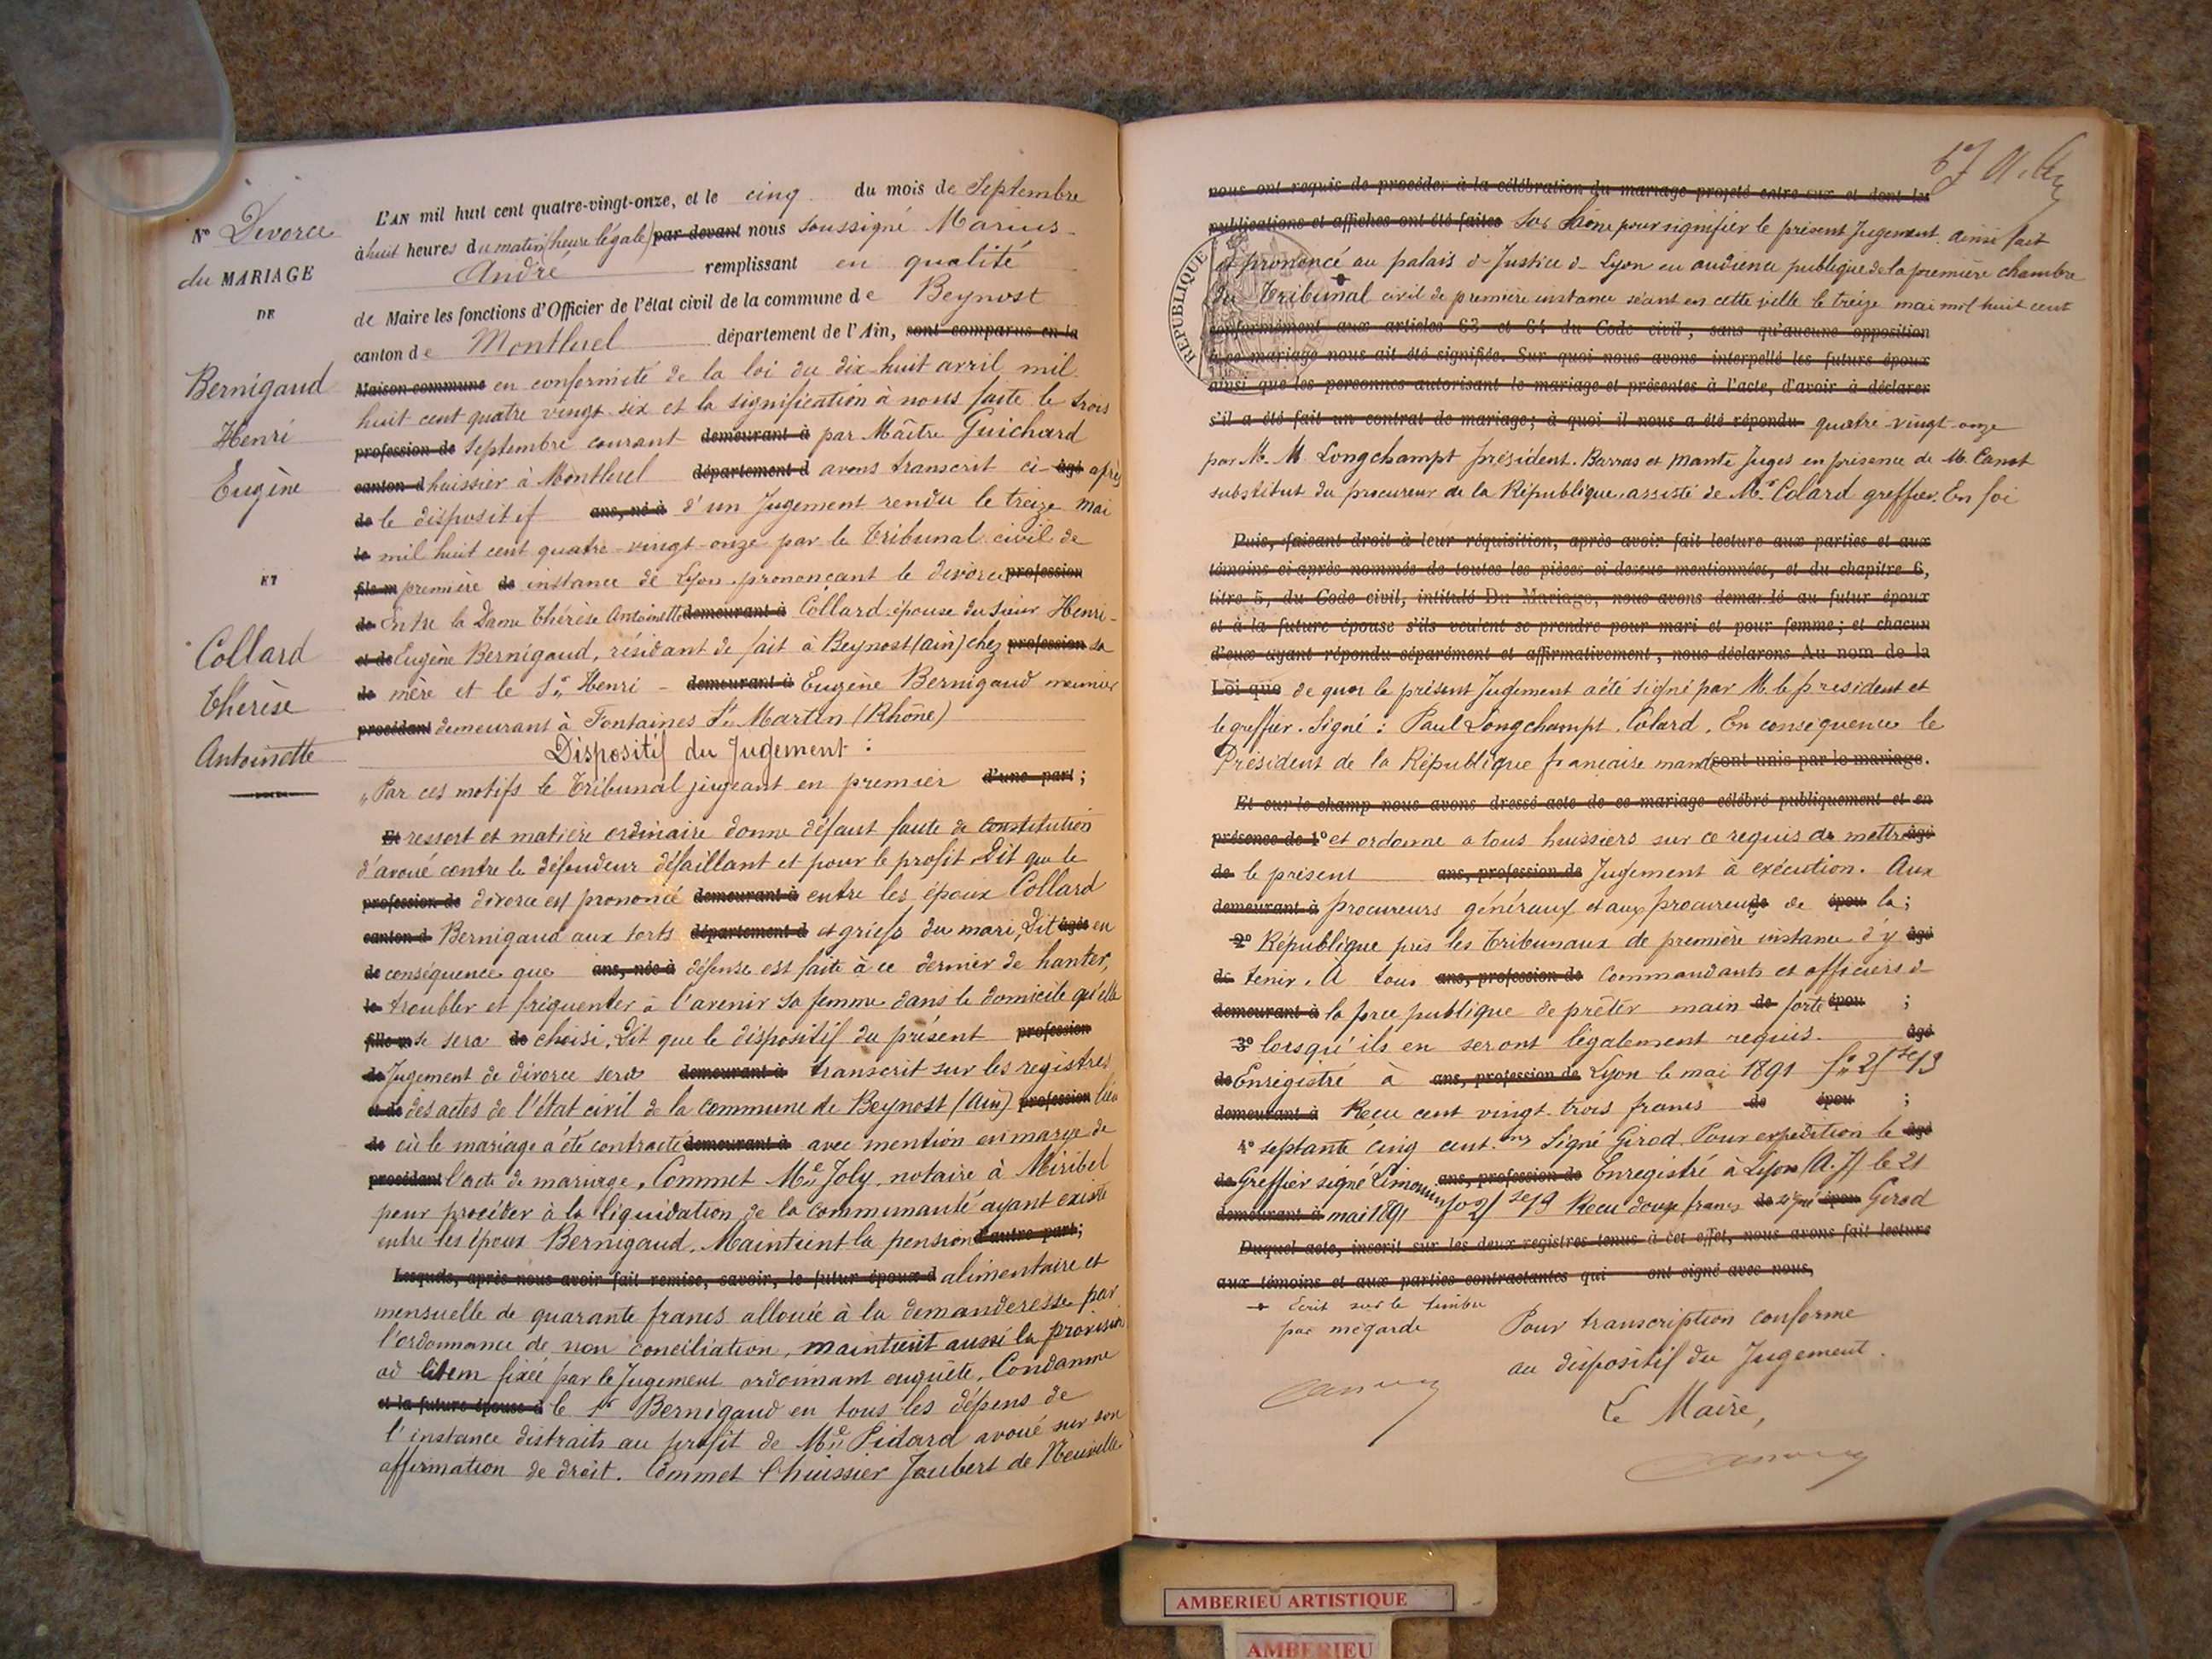 Nº Divorce
du MARIAGE
DE
Bernigaud
Henri
Eugène
ET
Collard
Thérèse
Antoinette
L'AN mil huit cent quatre-vingt-onze, et le cinq du mois de Septembre
à huit heures du matin (heure légale) par devant nous soussigné Marius
André remplissant en qualité
de Maire les fonctions d'Officier de l'état civil de la commune de Beynost
canton de Montluel département de l'Ain, sont comparus en la
Maison commune en conformité de la loi du dix-huit avril mil
huit cent quatre vingt six et la signification à nous faite le trois
profession de Septembre courant demeurant à par Maître Guichard
canton d huissier à Montluel département d avons transcrit ci-âgé après
de le dispositif ans, né à d'un Jugement rendu le treize mai
le mil huit cent quatre-vingt-onze par le Tribunal civil de
fils m première de instance de Lyon prononçant le divorce profession
de Entre la Dame Thérèse Antoinette demeurant à Collard épouse du Sieur Henri-
et de Eugène Bernigaud, résidant de fait à Beynost (Ain) chez profession sa
de mère et le Sr Henri - demeurant à Eugène Bernigaud meunier
procédant demeurant à Fontaines St Martin (Rhône)
Dispositif du Jugement :
"Par ces motifs le Tribunal jugeant en premier d'une part ;
Et ressort et matière ordinaire donne défaut faute de constitution
d'avoué contre le défendeur défaillant et pour le profit Dit que le
profession de divorce est prononcé demeurant à entre les époux Collard
canton d Bernigaud aux torts département d et griefs du mari, Dit âgée en
de conséquence que ans, née à défense est faite à ce dernier de hanter,
le troubler et fréquenter à l'avenir sa femme dans le domicile qu'elle
fille m se sera de choisi. Dit que le dispositif du présent profession
de Jugement de divorce sera demeurant à transcrit sur les registres
et de des actes de l'état civil de la commune de Beynost (Ain) profession lieu
de où le mariage a été contracté demeurant à avec mention en marge de
procédant l'acte de mariage, Commet Me Joly, notaire à Miribel
pour procéder à la liquidation de la communauté ayant existé
entre les époux Bernigaud. Maintient la pension d'autre part;
Lesquels, après nous avoir fait remise, savoir, le futur époux d alimentaire et
mensuelle de quarante francs allouée à la demanderesse par
l'ordonnance de non conciliation, maintient aussi la provision
ad litem fixée par le Jugement ordonnant enquête. Condamne
et la future épouse d le Sr Bernigaud en tous les dépens de
l'instance distraits au profit de Me Pidard avoué sur son
affirmation de droit. Commet l'huissier Joubert de Neuville
67
nous ont requis de procéder à la célébration du mariage projeté entre eux et dont les
publications et affiches ont été faites Sur Saône pour signifier le présent Jugement. ainsi fait
et prononcé au palais de Justice de Lyon en audience publique de la première chambre
du Tribunal civil de première instance séant en cette ville le treize mai mil huit cent
RÉPUBLIQUE
conformément aux articles 63 et 64 du Code civil, sans qu'aucune opposition
à ce mariage nous ait été signifiée. Sur quoi nous avons interpellé les futurs époux
ainsi que les personnes autorisant le mariage et présentes à l'acte, d'avoir à déclarer
s'il a été fait un contrat de mariage; à quoi il nous a été répondu quatre vingt-onze
par M. M. Longchampt président. Barras et Mante Juges en présence de M. Canat
substitut du procureur de la République, assisté de Mr Colard greffier. En foi
Puis, faisant droit à leur réquisition, après avoir fait lecture aux parties et aux
témoins ci-après nommés de toutes les pièces ci dessus mentionnées, et du chapitre 6,
titre 5, du Code civil, intitulé Du Mariage, nous avons demandé au futur époux
et à la future épouse s'ils veulent se prendre pour mari et pour femme; et chacun
d'eux ayant répondu séparément et affirmativement, nous déclarons Au nom de la
Loi que de quoi le présent Jugement a été signé par M. le président et
le greffier. Signé : Paul Longchampt. Colard. En conséquence le
Président de la République française mande sont unis par le mariage.
Et sur-le-champ nous avons dressé acte de ce mariage célébré publiquement et en
présence de 1º et ordonne a tous huissiers sur ce requis de mettre âgé
de le présent ans, profession de Jugement à exécution. Aux
demeurant à procureurs généraux et aux procureurs de de épou la ;
2º République près les Tribunaux de première instance d'y âgé
de tenir. A tous ans, profession de Commandants et officiers de
demeurant à la force publique de prêter main de forte épou ;
3º lorsqu'ils en seront légalement requis. âgé
de Enregistré à ans, profession de Lyon le mai 1891 fo 25 se 13
demeurant à Reçu cent vingt-trois francs de épou ;
4º septante cinq cent.mes Signé Girod. Pour expédition le âgé
de Greffier signé Limonum ans, profession de Enregistré à Lyon (A.J) le 21
demeurant à mai 1891 fo 25 se 13 Reçu douze francs de signé épou Girod
Duquel acte, inscrit sur les deux registres tenus à cet effet, nous avons fait lecture
aux témoins et aux parties contractantes qui ont signé avec nous,
Ecrit sur le timbre
par mégarde
Pour transcription conforme
au dispositif du Jugement.
Le Maire,
AMBERIEU ARTISTIQUE
AMBERIEU